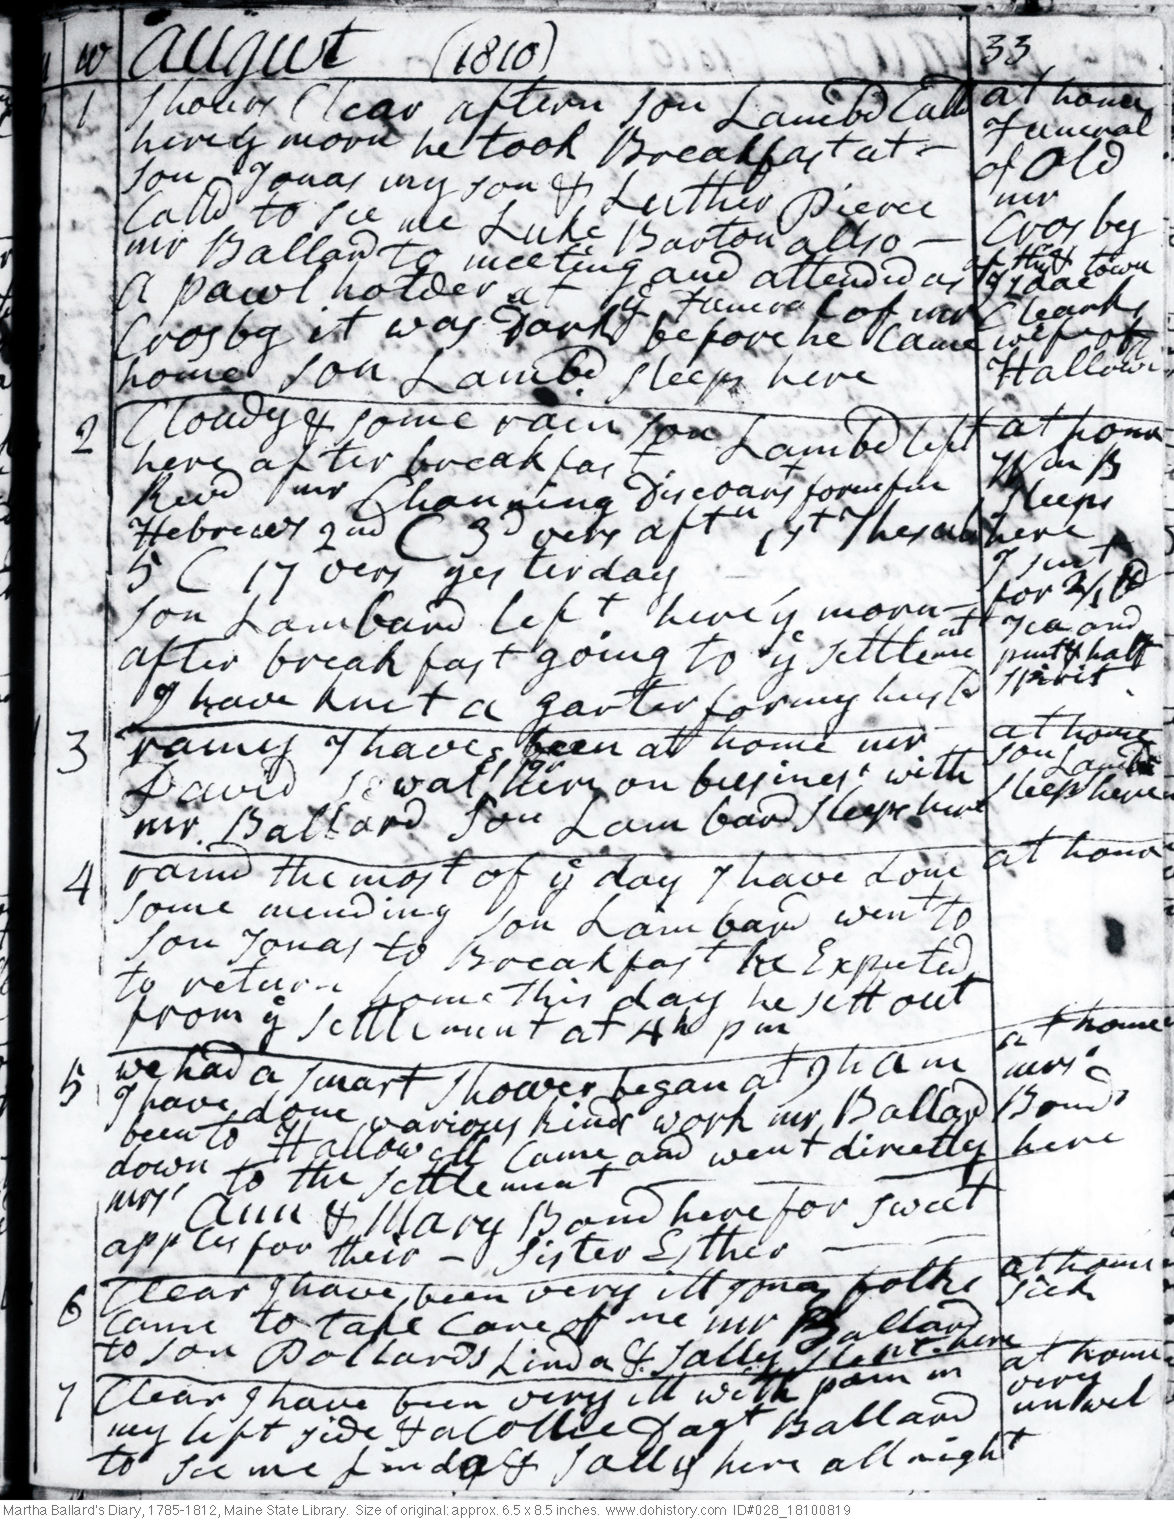 w August (1810) 33
1 Showrs Clear aftern son Lambd Calld
here ÿ morn he took Breakfast at –
son Jonas my son & Luther Pierce
Calld to see me Luke Barton allso –
mr Ballard to meeting and attended as
a pawl holder at ÿ Funeral of mr
Crosby it was Dark before he Came
home son Lambd sleeps here
at home
Funeral
of Old
mr
Crosby
of this town
Isaac
Clearks
wife of
Hallowell
2 Cloudy & some rain son Lambd left
here after breakfast
Revd mr Channing Discoarst foren from
Hebrews 2nd C 3d vers aftn 1st Thesa
5 C 17 vers yesterday
son Lambard left here ÿ morn
after breakfast going to ÿ settlement
I have knit a garter for my husbd
at home
Wm B
sleeps
here
I sent
for
Tea and
pint & half
spirit
3 rainy I have been at home mr
David Sewal here on bussiness with
mr Ballard Son Lambard sleeps here
at home
son Lambd
sleeps here
4 raind the most of ÿ day I have done
some mending son Lambard went to
son Jonas to Breakfast he Expected
to return home This day he sett out
from ÿ settlement at 4h pm
at home
5 we had a smart shower began at 9 h A m
I have done various kinds work mr Ballard
been to Hallowell Came and went directly
down to the settlement
mrs Ann & Mary Bond here for sweet
apples for their – sister Esther –
at home
mrs
Bonds
here
6 Clear I have been very ill Jonas folks
Came to take Care of me mr Ballard
to son Pollards Linda & Sally slept here
at home
sick
7 Clear I have been very ill with pain in
my left side & a Collic Dagt Ballard
to see me Linda & Sally here all night
at home
very
unwel
Martha Ballard's Diary, 1785-1812, Maine State Library. Size of original: approx. 6.5 x 8.5 inches. www.dohistory.com ID#028_18100819